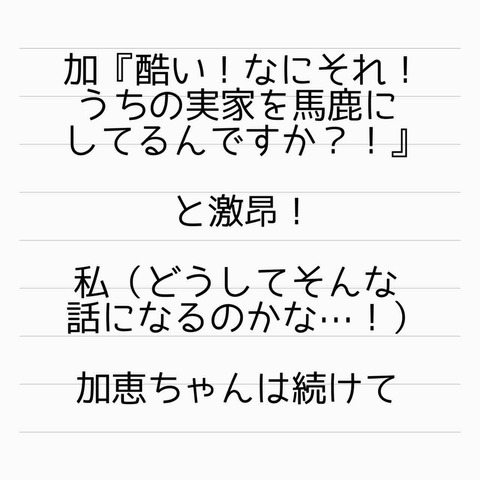 加『酷い！なにそれ！
うちの実家を馬鹿に
してるんですか？！』
と激昂！
私（どうしてそんな
話になるのかな…！）
加恵ちゃんは続けて